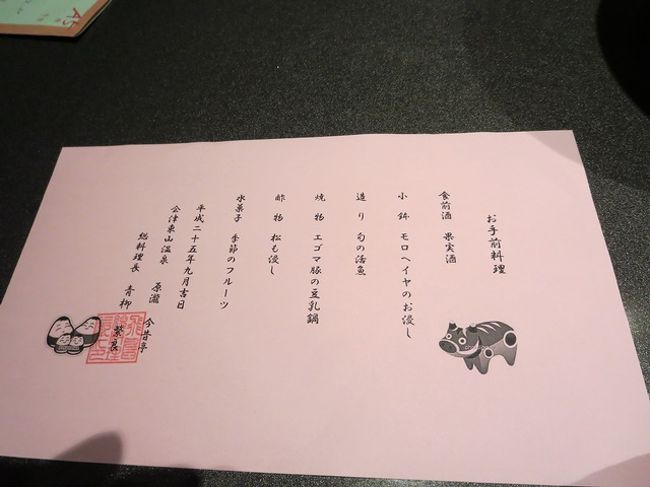 お手前料理
食前酒 果実酒
小鉢 モロヘイヤのお浸し
造り 旬の活魚
焼物 エゴマ豚の豆乳鍋
酢物 松も浸し
水菓子 季節のフルーツ
平成二十五年九月吉日
会津東山温泉 原瀧 今昔亭
総料理長 青柳 紫良